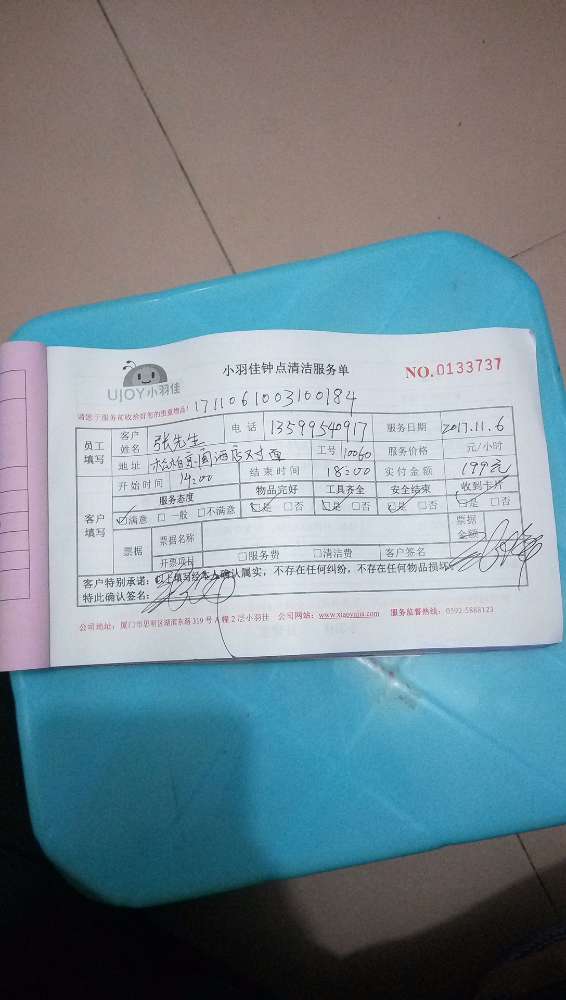 小羽佳钟点清洁服务单
NO.0133737
UJOY小羽佳
1711061003100184
员工填写 客户姓名 张先生 电话 13599540917 服务日期 2017.11.6
地址 京闽酒店对面 工号 10060 服务价格 元/小时
开始时间 14:00 结束时间 18:00 实付金额 199元
客户填写 服务态度 物品完好 工具齐全 安全结束 收到卡片
☑满意 □一般 □不满意 ☑是 □否 ☑是 □否 ☑是 □否 ☑是 □否
票据 票据名称 票据金额
开票项目 □服务费 □清洁费 客户签名
客户特别承诺:以上填写经本人确认属实,不存在任何纠纷,不存在任何物品损坏。
特此确认签名:
公司地址:厦门市思明区湖滨东路319号A幢2层小羽佳 公司网站:www.xiaoyujia.com 服务监督热线:0592-5888123